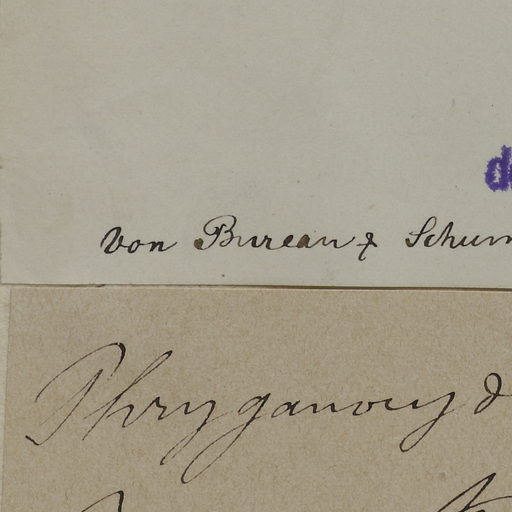 d
von Bureau & Schum
Phryganocyd